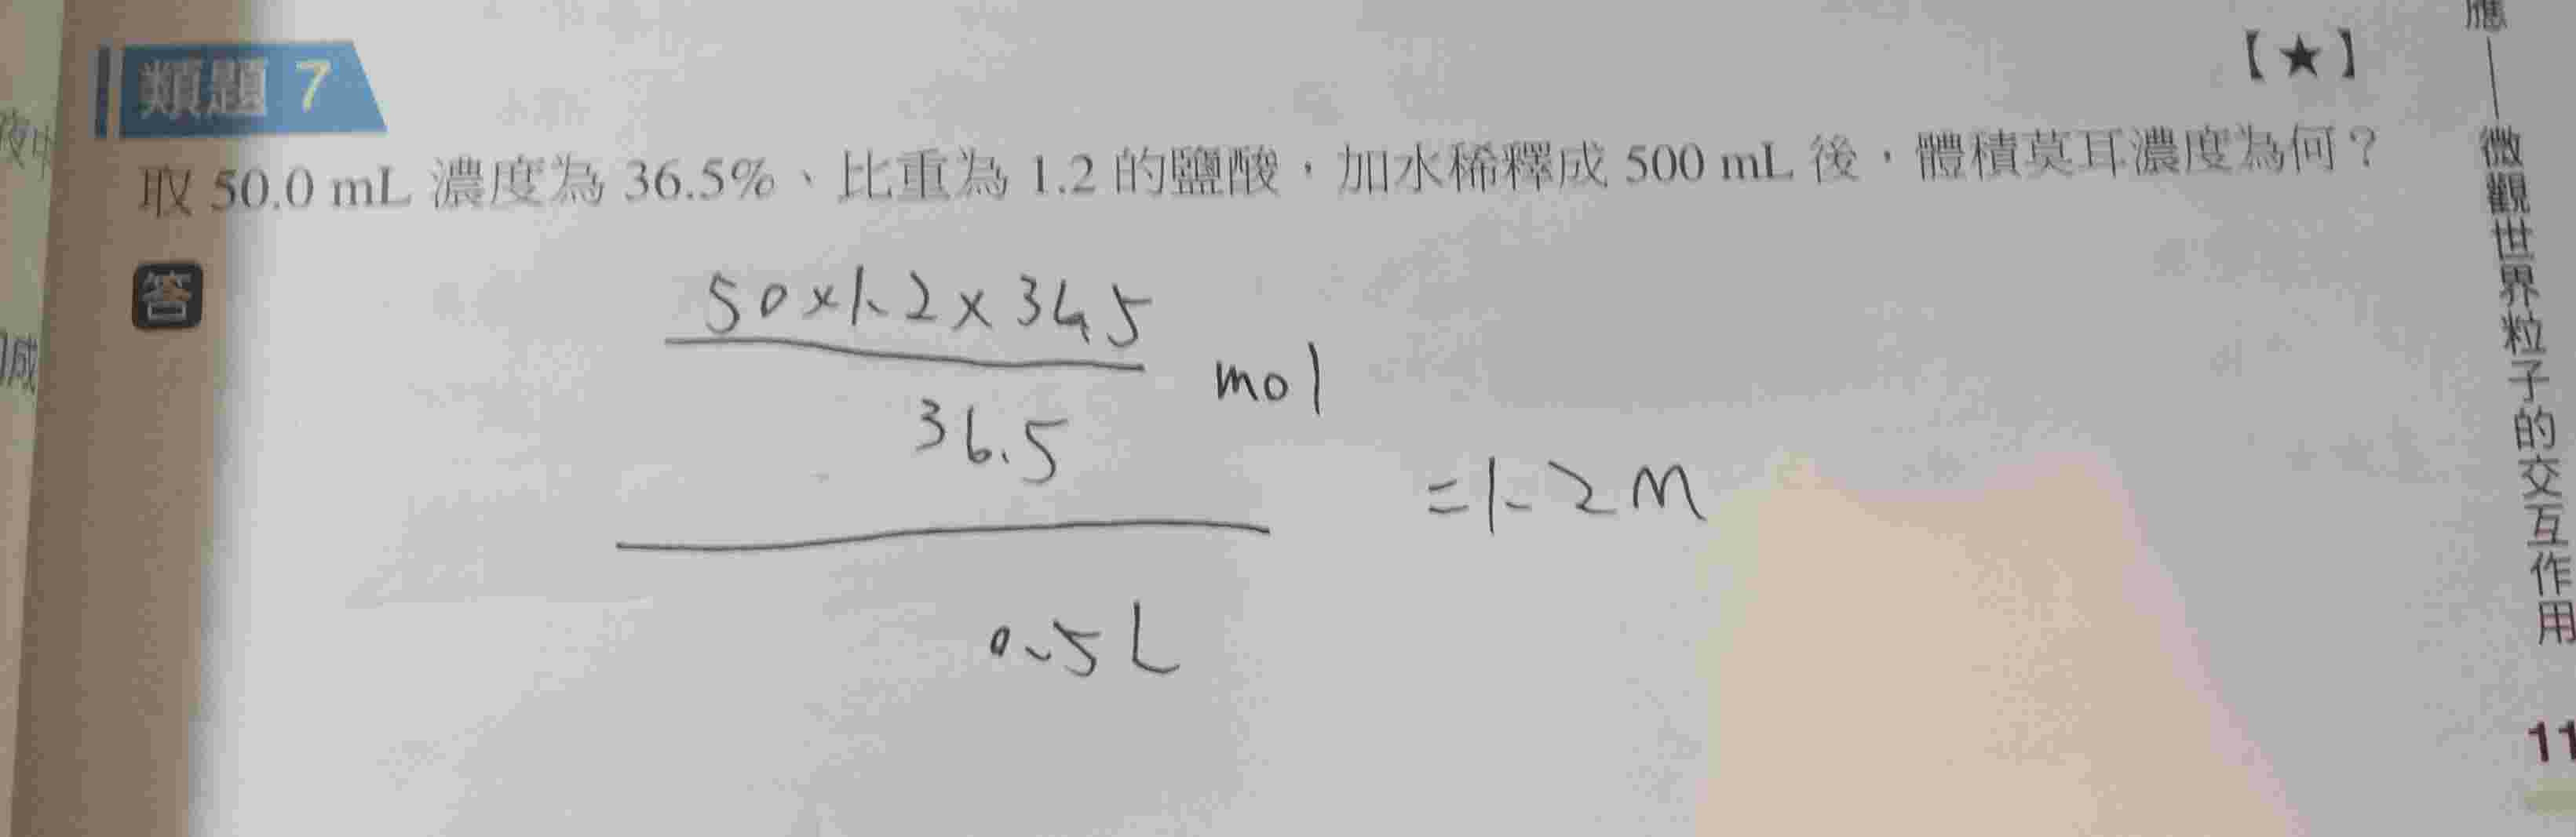 類題 7
【★】
取 50.0 mL 濃度為 36.5%、比重為 1.2 的鹽酸，加水稀釋成 500 mL 後，體積莫耳濃度為何？
答
50×1.2×36.5
36.5
mol
0.5 L
=1.2 M
微觀世界粒子的交互作用
11